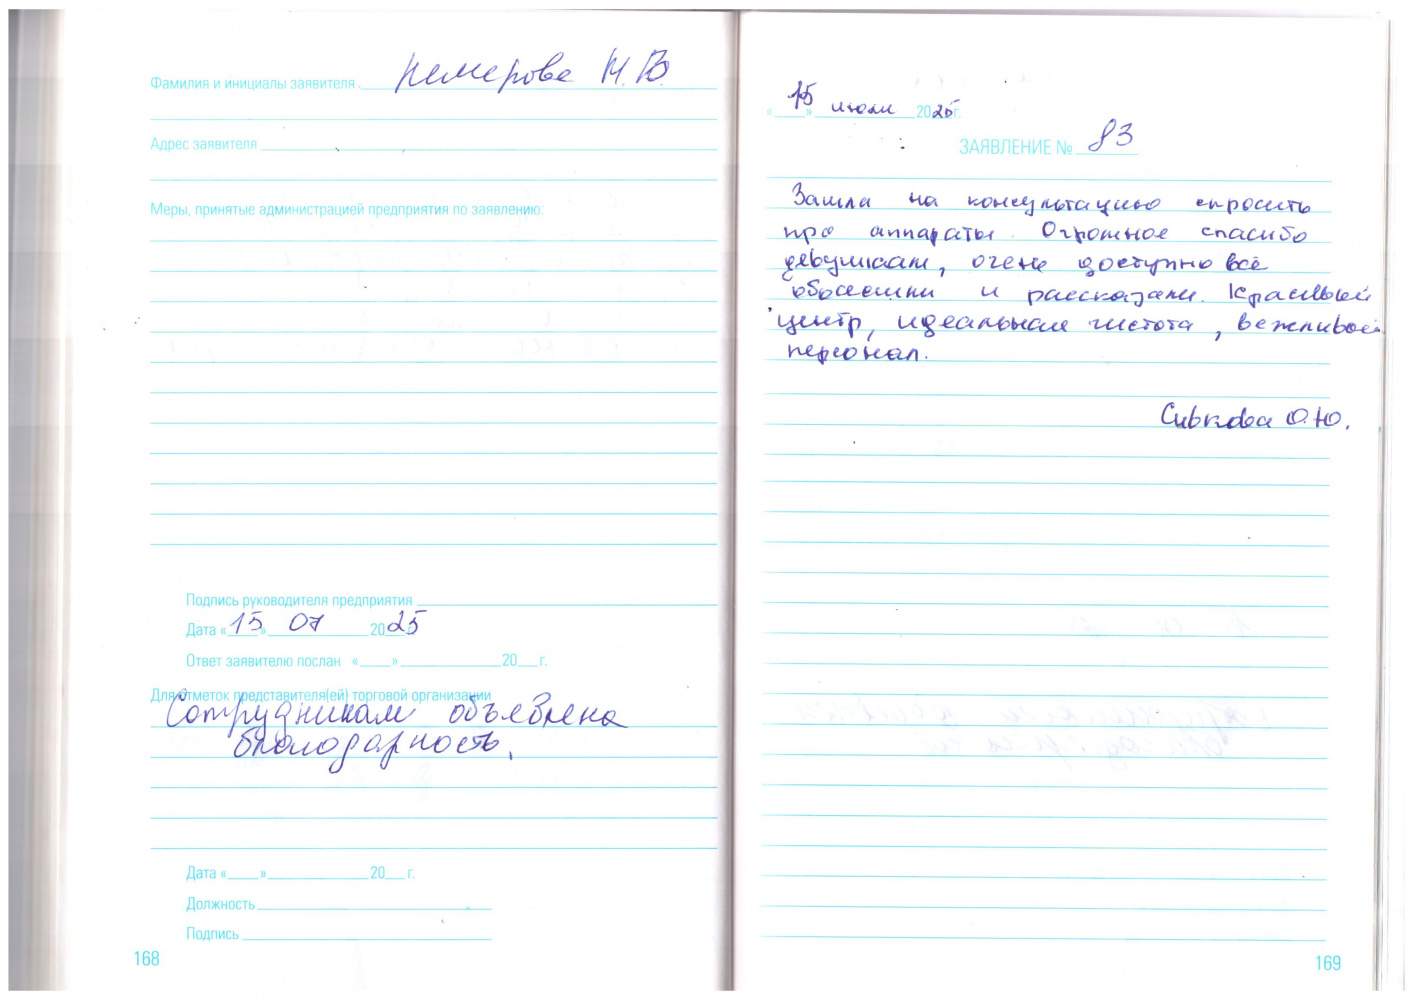 Фамилия и инициалы заявителя Немерова Н.В.
Адрес заявителя
Меры, принятые администрацией предприятия по заявлению:
Подпись руководителя предприятия
Дата «15» 07 2025 г.
Ответ заявителю послан «___» ___ 20__ г.
Для отметок представителя(ей) торговой организации
Сотрудникам объявлена
благодарность.
Дата «___» ___ 20__ г.
Должность
Подпись
168
«15» июля 2025 г.
ЗАЯВЛЕНИЕ № 83
Зашла на консультацию спросить
про аппараты. Огромное спасибо
девушкам, очень доступно всё
объяснили и рассказали. Красивый
центр, идеальная чистота, вежливый
персонал.
Сивкова О.Ю.
169